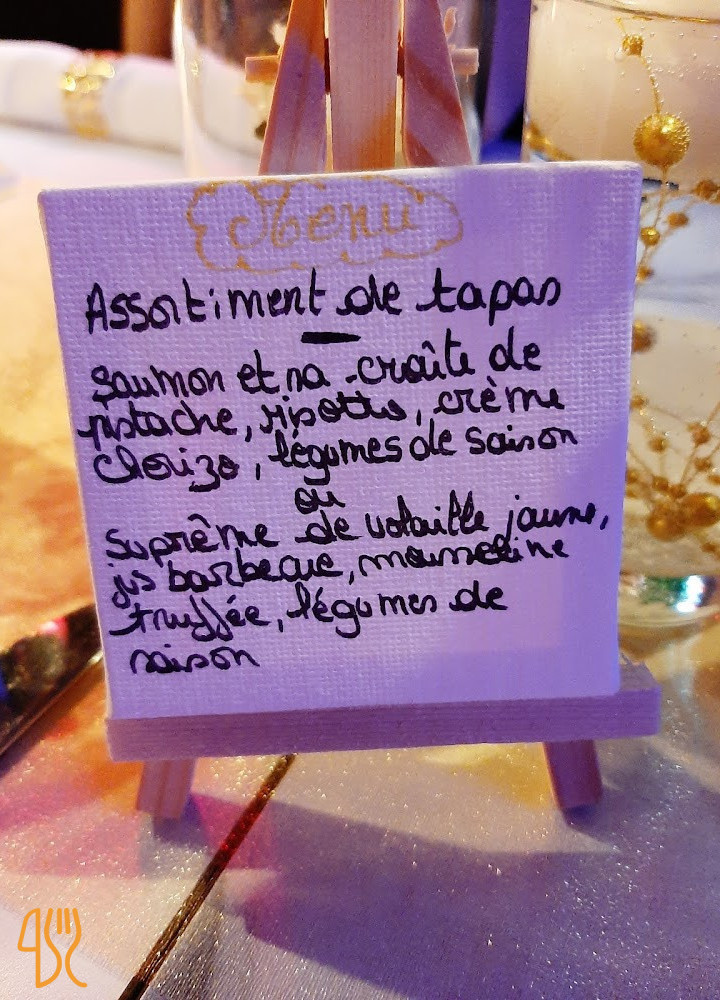 Menu
Assortiment de tapas
Saumon et sa croûte de
pistache, risotto, crème
chorizo, légumes de saison
ou
Suprême de volaille jaune,
jus barbecue, mousseline
truffée, légumes de
saison